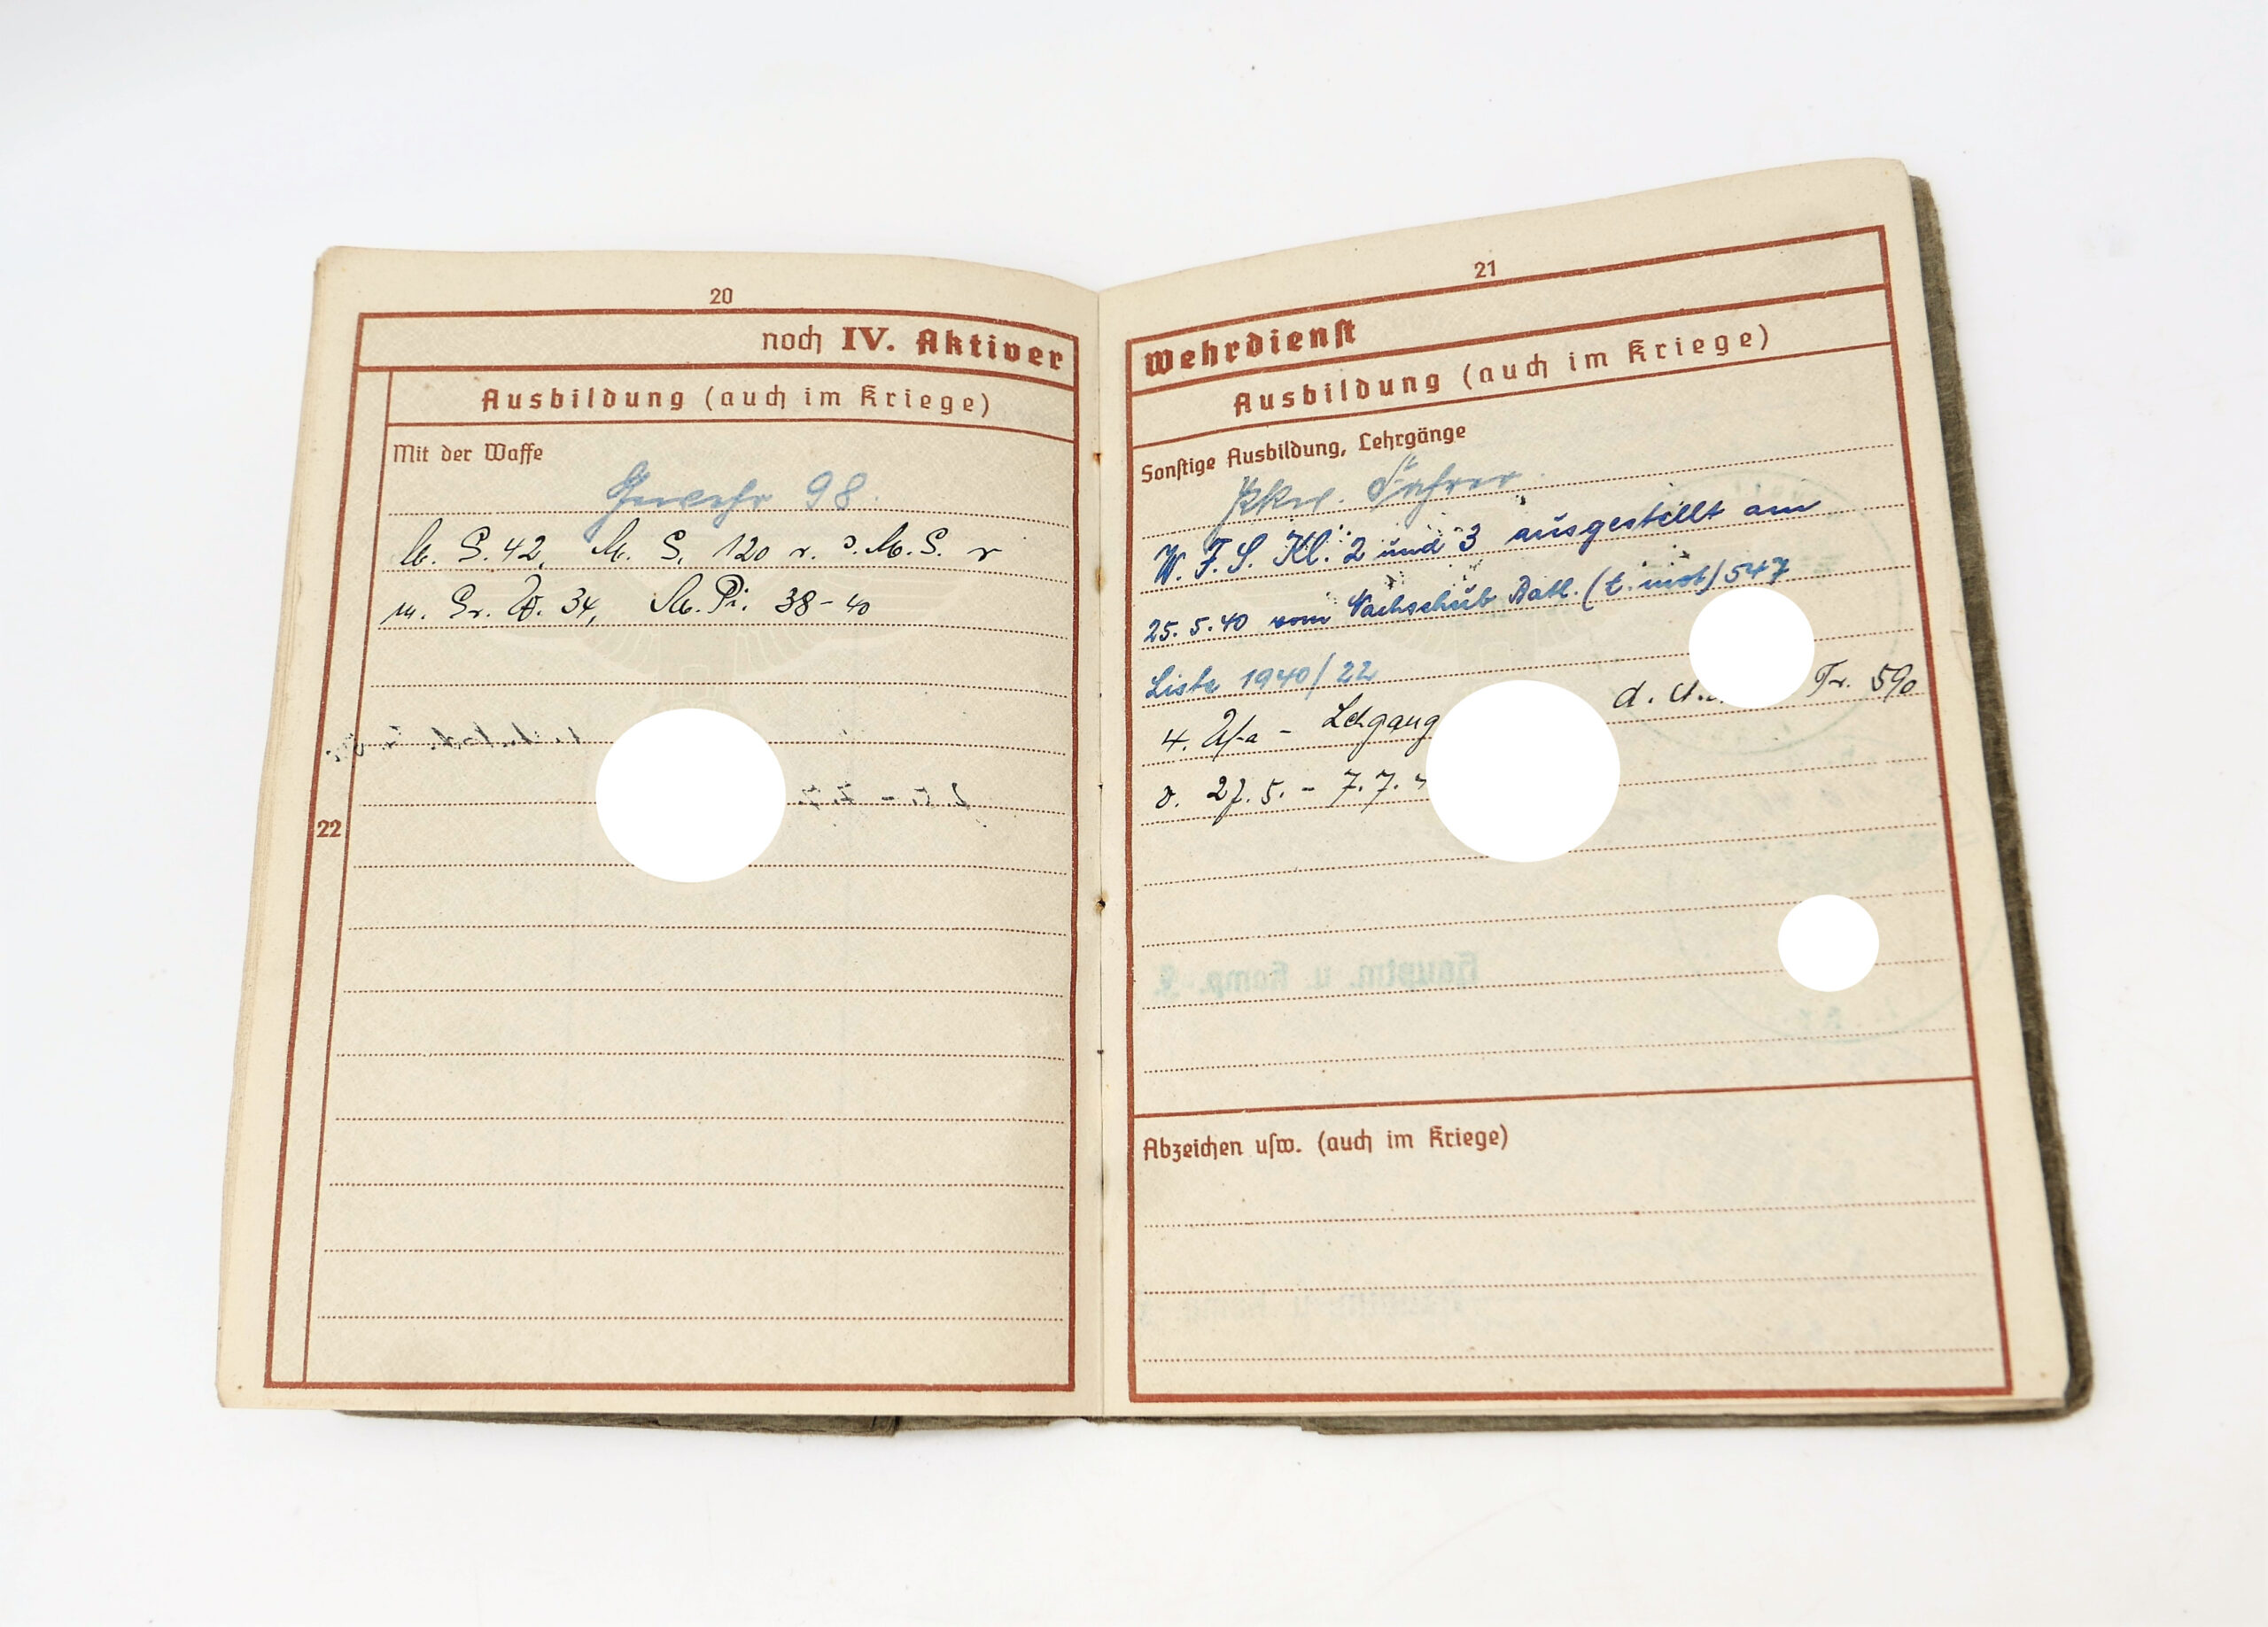 20
noch IV. Aktiver
Ausbildung (auch im Kriege)
Mit der Waffe
Gewehr 98.
M. G. 42, M. G. 120 r. s. M. G. r
m. Gr. W. 34, M. Pi. 38-40
22
21
Wehrdienst
Ausbildung (auch im Kriege)
Sonstige Ausbildung, Lehrgänge
Fahrer.
W. F. S. Kl. 2 und 3 ausgestellt am
25. 5. 40 vom Nachschub Batl. (t. mot) 547
Liste 1940/22
4. Lehrgang d. Tr. 590
v. 27. 5. - 7. 7.
Hauptm. u. Komp. F.
Abzeichen usw. (auch im Kriege)